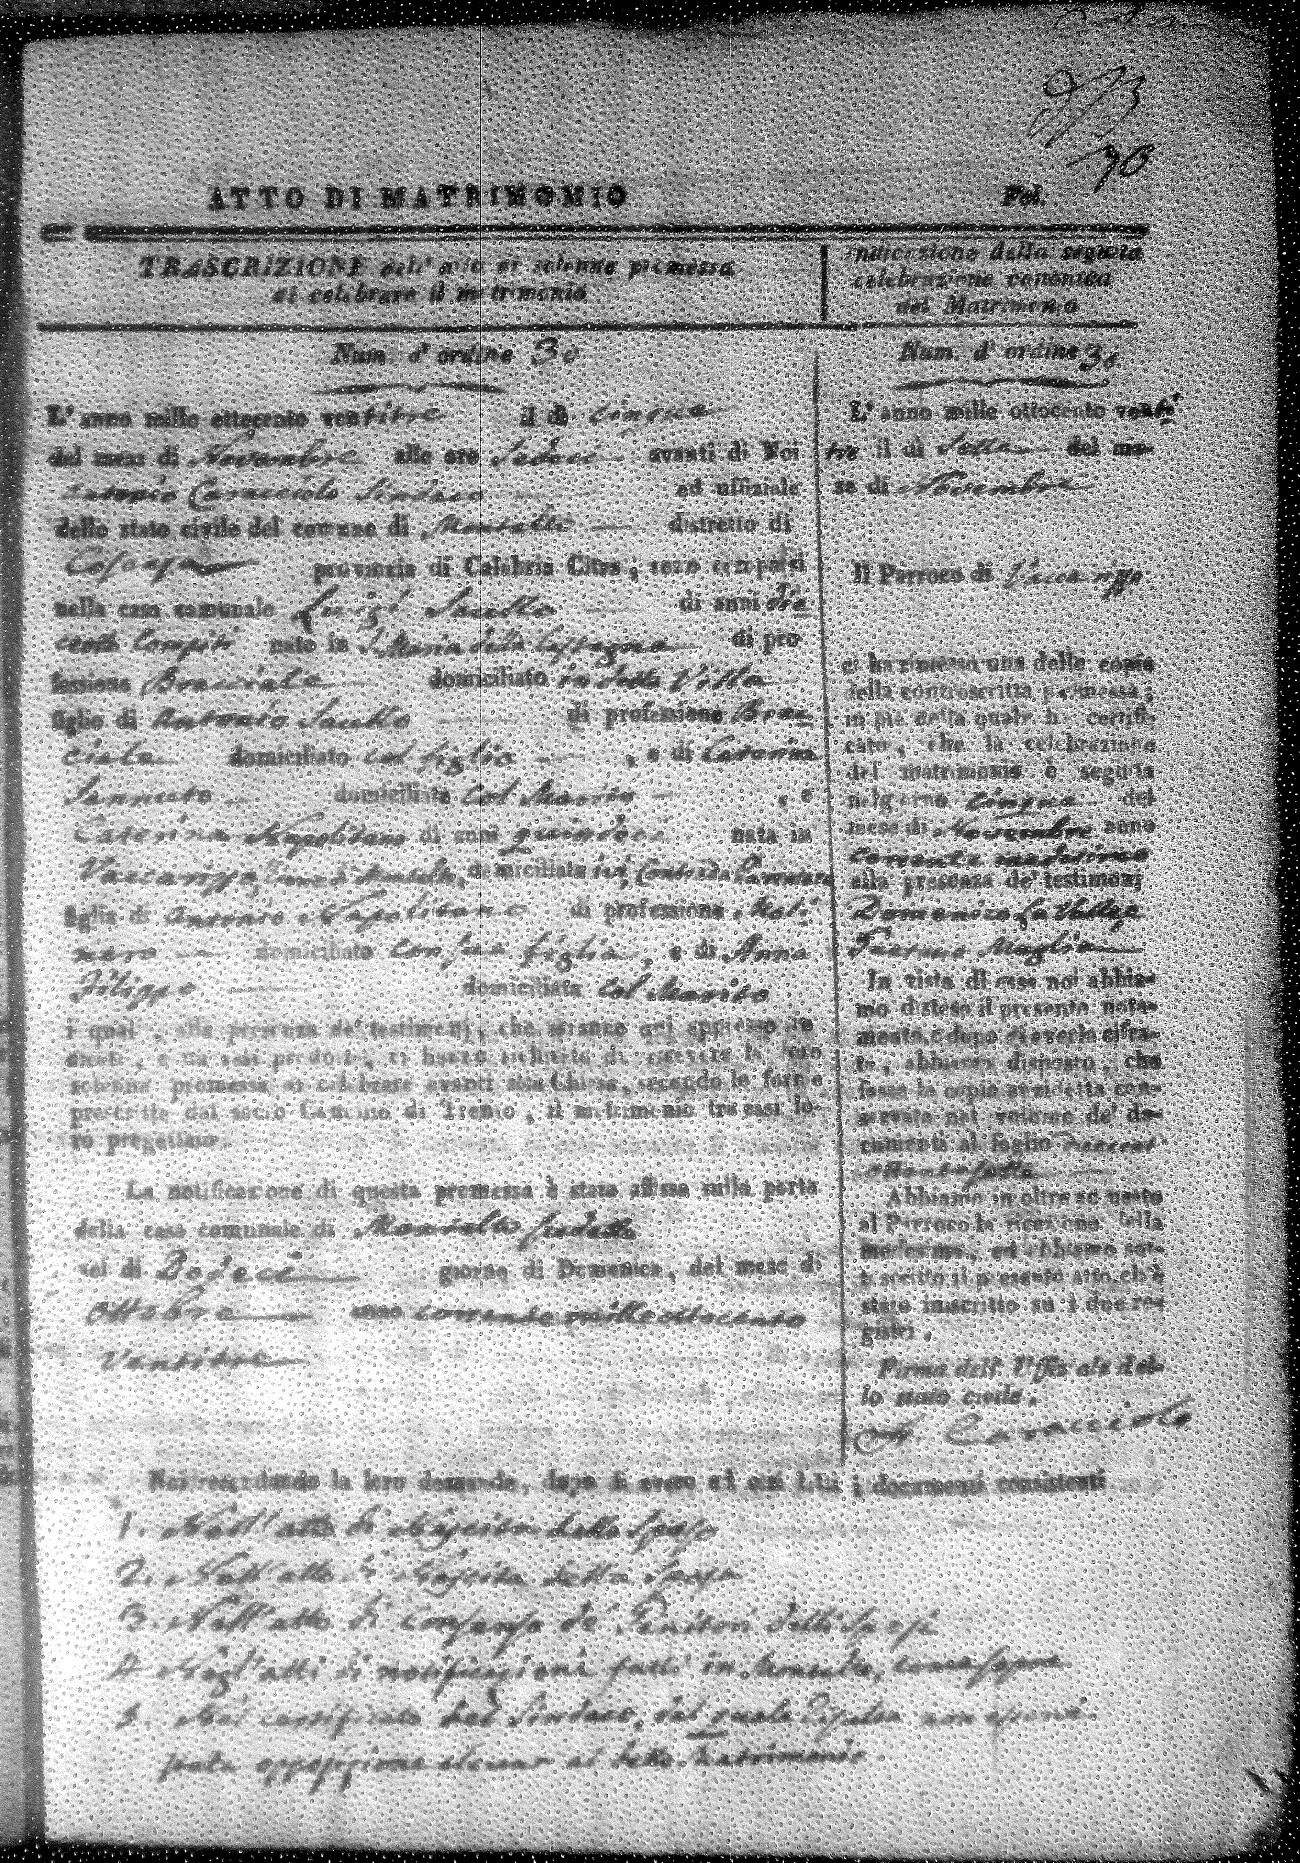 ATTO DI MATRIMONIO
Fol. 70
TRASCRIZIONE dell' atto di solenne promessa
di celebrare il matrimonio
Num. d' ordine 30
L' anno mille ottocento ventitre il dì cinque
del mese di Novembre alle ore Sedeci avanti di Noi
Antonio Caracciolo Sindaco ed uffiziale
dello stato civile del comune di Montalto distretto di
Cosenza provincia di Calabria Citra, sono comparsi
nella casa comunale Luigi di anni
compiti nato in di pro
fessione Bracciale domiciliato in detta Villa
figlio di Antonio di professione Brac
ciale domiciliato col figlio, e di Caterina
domiciliata col Marito, e
Caterina Napolitano di anni quindeci nata in
Vaccarizzo, domiciliata ivi,
figlia di Antonio Napolitano di professione Moli
naro domiciliato con sua figlia, e di Anna
Filippo domiciliata col Marito
i quali, alla presenza de' testimonj, che saranno qui appresso in
dicati, e da essi prodotti, ci hanno richiesto di ricevere la loro
solenne promessa di celebrare avanti alla Chiesa, secondo le forme
prescritte dal sacro Concilio di Trento, il matrimonio tra essi lo-
ro progettato.
La notificazione di questa promessa è stata affissa sulla porta
della casa comunale di Montalto sudetto
nel dì Dodeci giorno di Domenica, del mese di
Ottobre anno corrente mille ottocento
Ventitre
Indicazione della seguita
celebrazione canonica
del Matrimonio
Num. d' ordine 30
L' anno mille ottocento venti
tre il dì Sette del me-
se di Novembre
Il Parroco di Vaccarizzo
ci ha rimessa una delle copie
della controscritta promessa;
in piè della quale ha certifi-
cato, che la celebrazione
del matrimonio è seguita
nel giorno cinque del
mese di Novembre anno
corrente medesimo
alla presenza de' testimonj
Domenico La Valle, e
In vista di essa noi abbia-
mo disteso il presente nota-
mento, e dopo di averla cifra-
ta, abbiamo disposto, che
fosse la copia anzidetta con-
servata nel volume de' do-
cumenti al foglio
ottantasette
Abbiamo in oltre accusato
al Parroco la ricezione della
medesima, ed abbiamo sot-
toscritto il presente atto, ch' è
stato inscritto su i due re-
gistri.
Firma dell' Uffiziale del-
lo stato civile.
A Caracciolo
Noi secondando la loro domanda, dopo di avere ad essi letti i documenti consistenti
1. Nell'atto di Nascita dello Sposo
2. Nell'atto di Nascita della Sposa
3. Nell'atto di consenso de' Genitori delli Sposi
4. Negl'atti di notificazioni fatti in Montalto, come sopra
5. Nel certificato del Sindaco, dal quale risulta non essere
stata opposizione alcuna al detto Matrimonio.